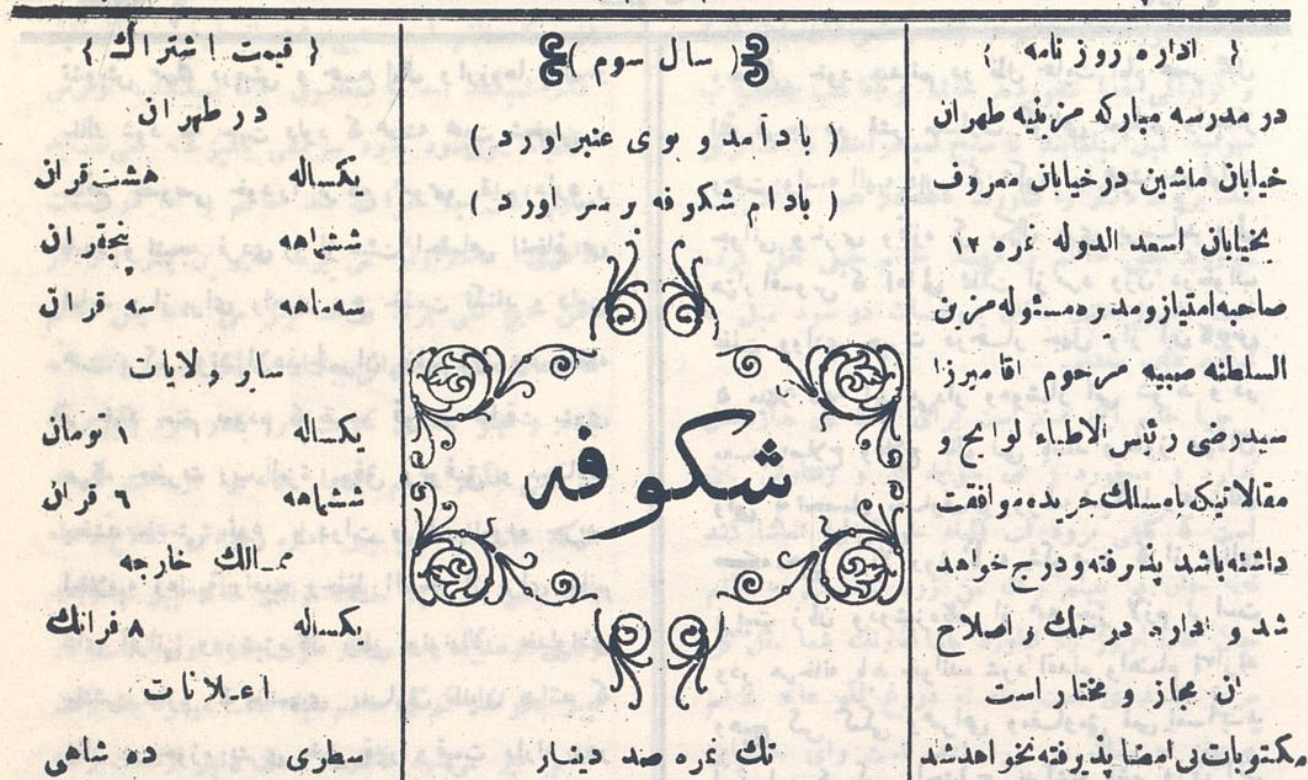 { اداره روز نامه }
در مدرسه مبارکه مزینیه طهران
خیابان ماشین در خیابان معروف
بخیابان اسعد الدوله نمره ۱۲
صاحبه امتیاز و مدیره مسئوله مزین
السلطنه صبیه مرحوم اقا میرزا
سید رضی رئیس الاطباء لوایح و
مقالاتیکه با مسلك جریده موافقت
داشته باشد پذیرفته و درج خواهد
شد و اداره در حك و اصلاح
ان مجاز و مختار است
مکتوبات بی امضا پذیرفته نخواهد شد
( سال سوم )
( باد آمد و بوی عنبر اورد )
( بادام شکوفه بر سر اورد )
شکوفه
تك نمره صد دینار
{ قیمت اشتراك }
در طهران
یکساله هشت قران
ششماهه پنجقران
سه‌ماهه سه قران
سایر ولایات
یکساله ۱ تومان
ششماهه ۶ قران
ممالك خارجه
یکساله ۸ فرانك
اعلانات
سطری ده شاهی